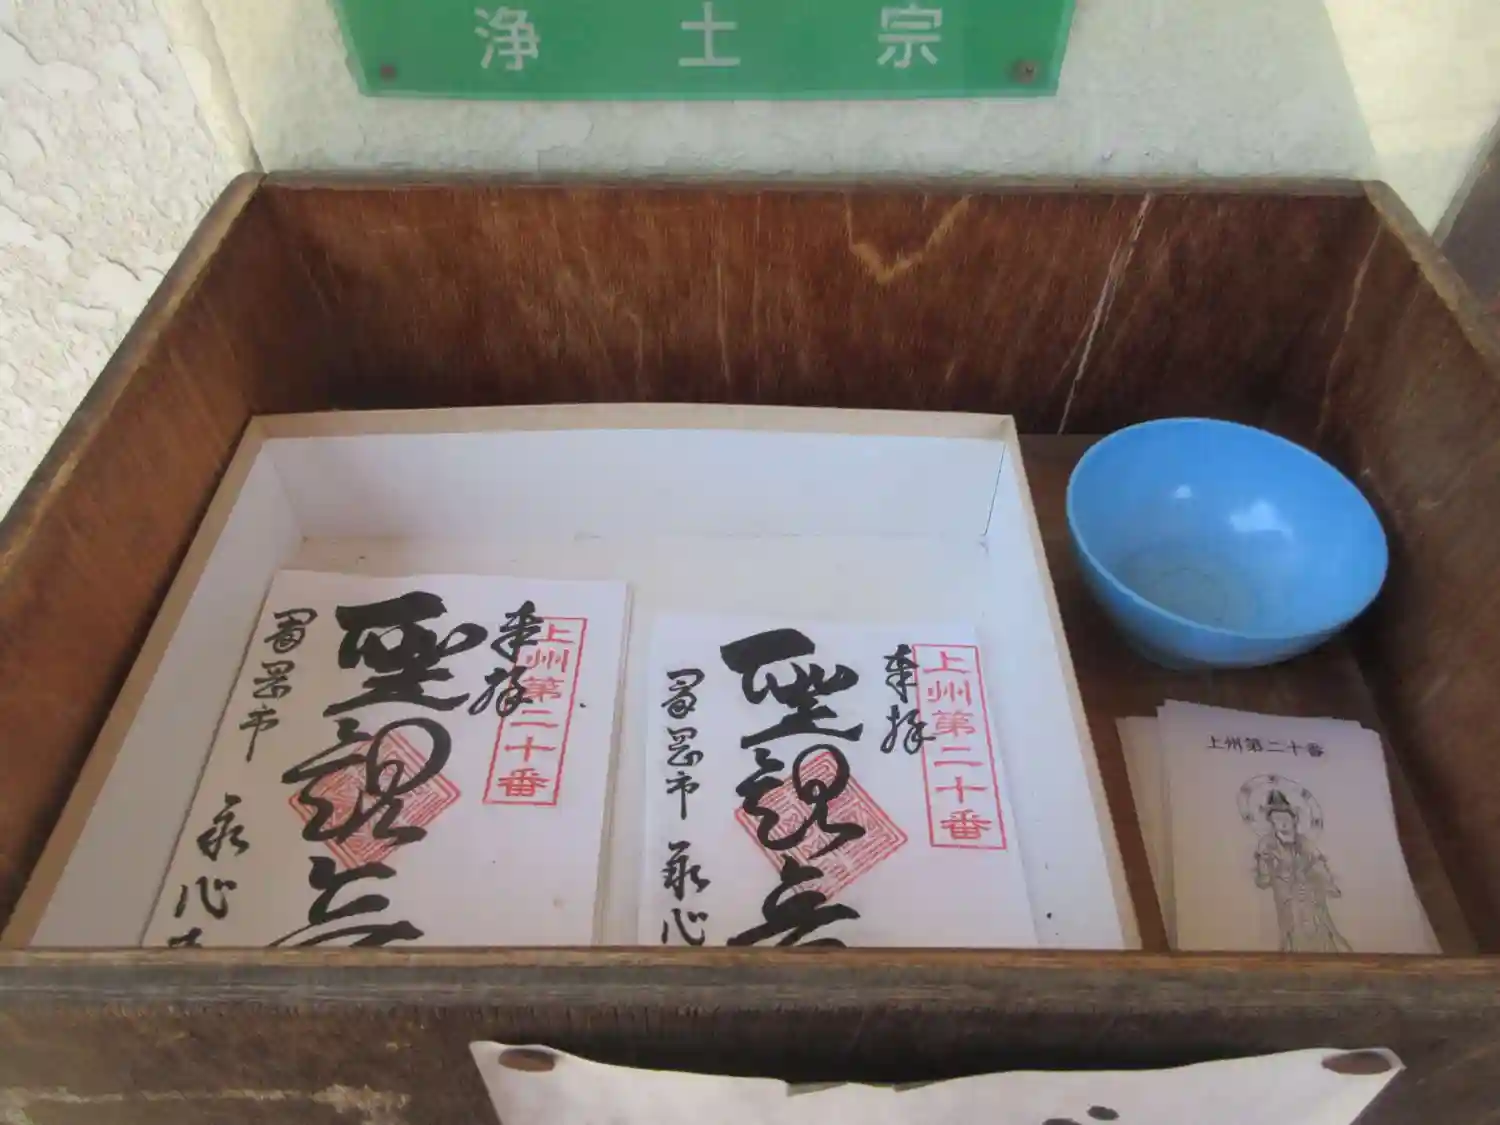 浄土宗
奉拝
上州第二十番
聖観音
富岡市
永心寺
奉拝
上州第二十番
聖観音
富岡市
永心
上州第二十番